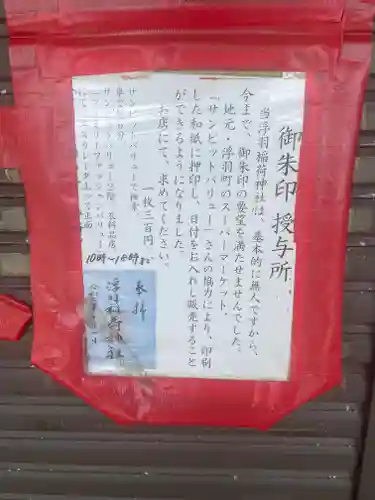 御朱印 授与所
当浮羽稲荷神社は、基本的に無人ですから、
今まで、御朱印の要望を満たせませんでした。
地元・浮羽町のスーパーマーケット
「サンピットバリュー」さんの協力により、印刷
した和紙に押印し、日付をお入れし販売すること
ができるようになりました。
お店にて、求めてください。
一枚三百円
サンピットバリューうきは
車で
サンピットバリュー2階 衣料品店
10時〜18時まで
奉拝
浮羽稲荷神社